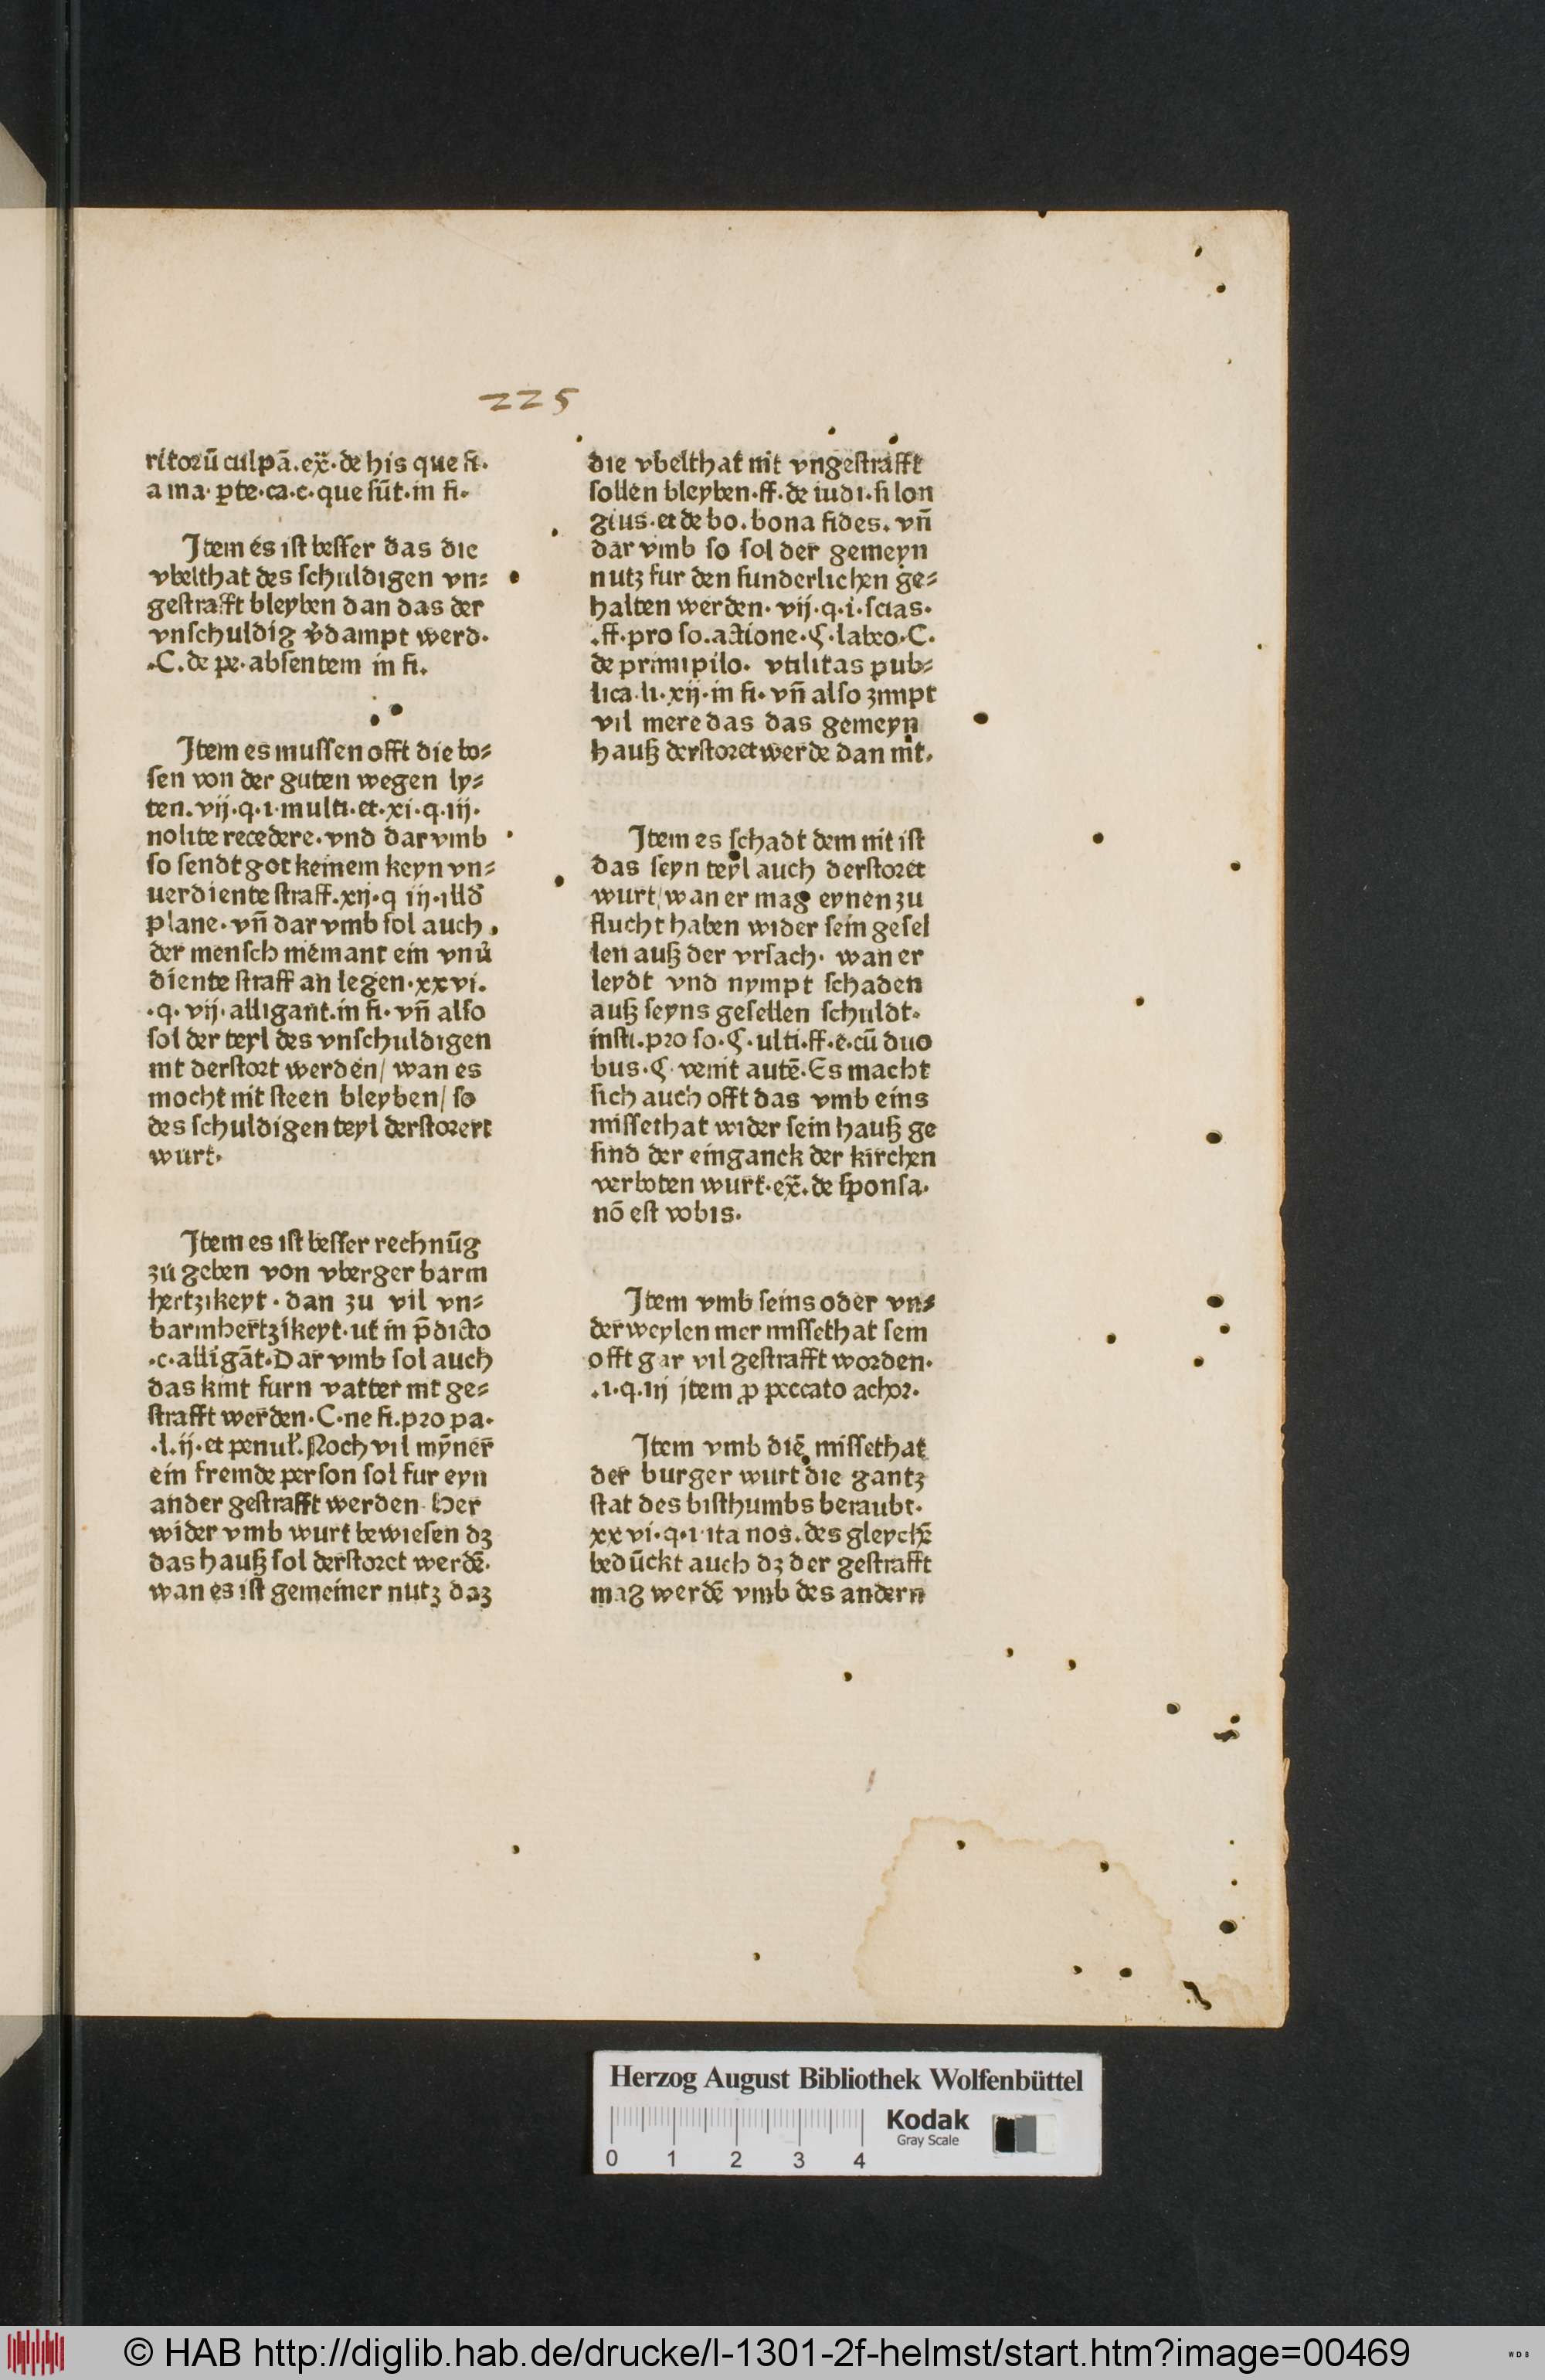 225
ritorū culpā.ex̄.de his que fi.
a ma.ꝑte.ca.c.que sūt.in fi.
Item es ist besser das die
vbelthat des schuldigen vn⸗
gestrafft bleyben dan das der
vnschuldig v̓dampt werd.
.C.de pe.absentem in fi.
Item es mussen offt die bo⸗
sen von der guten wegen ly⸗
ten.vij.q.i.multi.et.xi.q.iij.
nolite recedere.vnd dar vmb
so sendt got keinem keyn vn⸗
uerdiente straff.xij.q iij.illd̓
plane.vn̄ dar vmb sol auch
der mensch niemant ein vnu̓
diente straff an legen.xxvi.
.q.vij.alligant.in fi.vn̄ also
sol der teyl des vnschuldigen
nit derstort werden/ wan es
mocht nit steen bleyben/ so
des schuldigen teyl derstorert
wurt.
Item es ist besser rechnūg
zu geben von vberger barm
hertzikeyt.dan zu vil vn⸗
barmhertzikeyt.ut in p̄dicto
.c.alligāt.Dar vmb sol auch
das kint furn vatter nit ge⸗
strafft werden.C.ne fi.pro pa.
.l.ij.et penul̓.Noch vil mȳner̄
ein fremde person sol fur eyn
ander gestrafft werden.Her
wider vmb wurt bewiesen dz
das hauß sol derstoret werdē.
wan es ist gemeiner nutz daz
die vbelthat nit vngestrafft
sollen bleyben.ff.de iudi.si lon
gius.et de bo.bona fides.vn̄
dar vmb so sol der gemeyn
nutz fur den sunderlichen ge⸗
halten werden.vij.q.i.scias.
.ff.pro so.actione.§.labeo.C.
de primipilo. vtilitas pub⸗
lica.li.xij.in fi.vn̄ also zimpt
vil mere das das gemeyn
hauß derstoret werde dan nit.
Item es schadt dem nit ist
das seyn teyl auch derstoret
wurt/ wan er mag eynen zu
flucht haben wider sein gesel
len auß der vrsach. wan er
leydt vnd nympt schaden
auß seyns gesellen schuldt.
insti.pro so.§.ulti.ff.e.cū duo
bus.§.venit autē.Es macht
sich auch offt das vmb eins
missethat wider sein hauß ge
sind der einganck der kirchen
verboten wurt.ex̄.de sponsa.
nō est vobis.
Item vmb seins oder vn⸗
derweylen mer missethat sein
offt gar vil gestrafft worden.
.i.q.iiij item ꝓ peccato achor.
Item vmb diē missethat
der burger wurt die gantz
stat des bisthumbs beraubt.
xxvi.q.i.ita nos.des gleychē
bedūckt auch dz der gestrafft
mag werdē vmb des andern
Herzog August Bibliothek Wolfenbüttel
Kodak
Gray Scale
0 1 2 3 4
© HAB http://diglib.hab.de/drucke/l-1301-2f-helmst/start.htm?image=00469